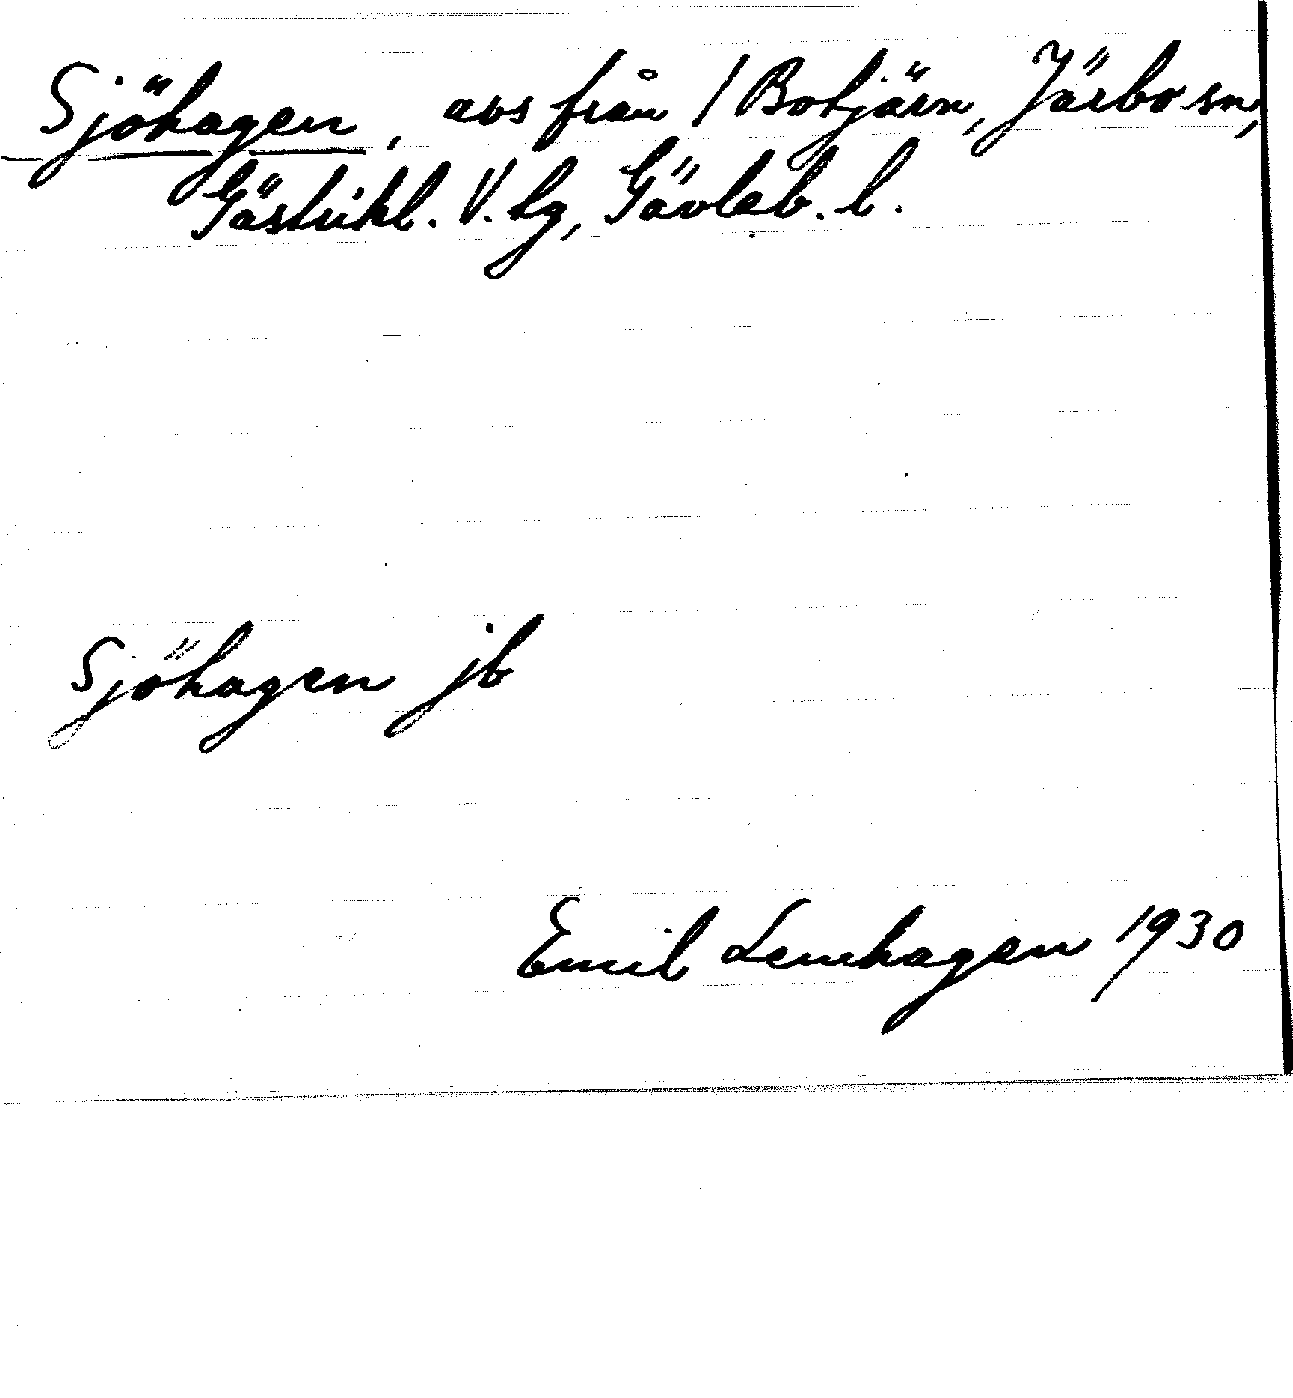 Sjöhagen, avs från 1 Botjärn, Järbo sn,
Gästrikl. V. tg, Gävleb. l.
Sjöhagen jb
Emil Lemhagen 1930